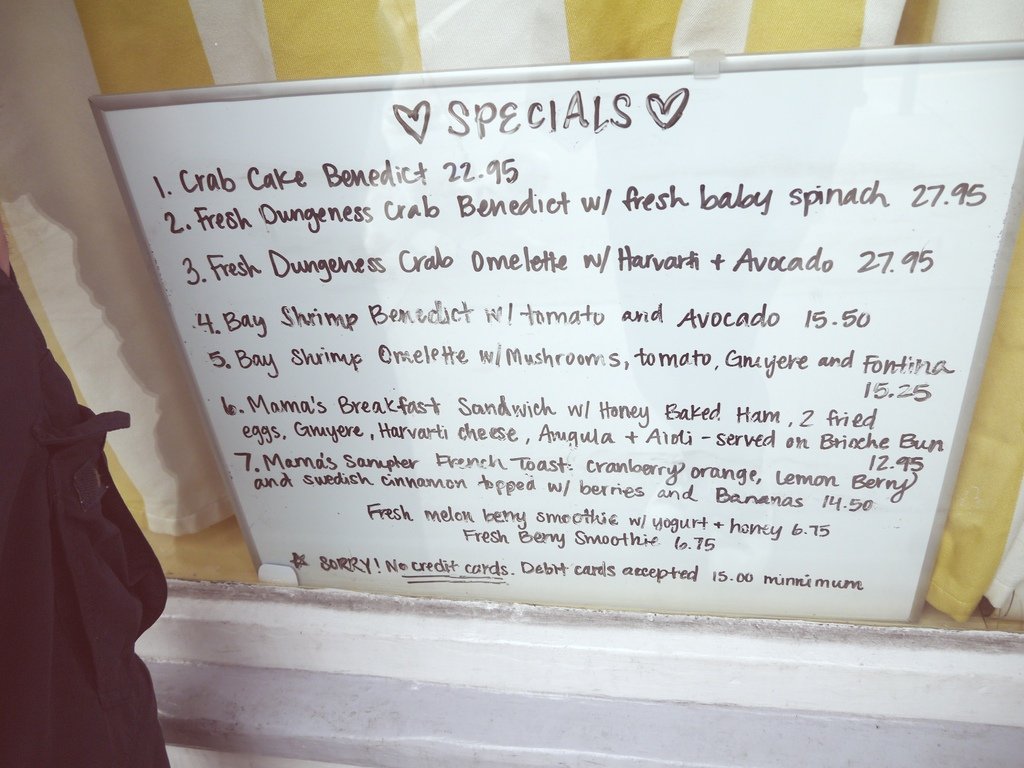 ♡ SPECIALS ♡
1. Crab Cake Benedict 22.95
2. Fresh Dungeness Crab Benedict w/ fresh baby spinach 27.95
3. Fresh Dungeness Crab Omelette w/ Harvarti + Avocado 27.95
4. Bay Shrimp Benedict w/ tomato and Avocado 15.50
5. Bay Shrimp Omelette w/ Mushrooms, tomato, Gruyere and Fontina
15.25
6. Mama's Breakfast Sandwich w/ Honey Baked Ham, 2 fried
eggs, Gruyere, Harvarti cheese, Arugula + Aioli - served on Brioche Bun
12.95
7. Mama's Sampler French Toast: cranberry orange, Lemon Berry
and swedish cinnamon topped w/ berries and Bananas 14.50
Fresh melon berry smoothie w/ yogurt + honey 6.75
Fresh Berry Smoothie 6.75
☆ SORRY! No credit cards. Debit cards accepted 15.00 minnimum